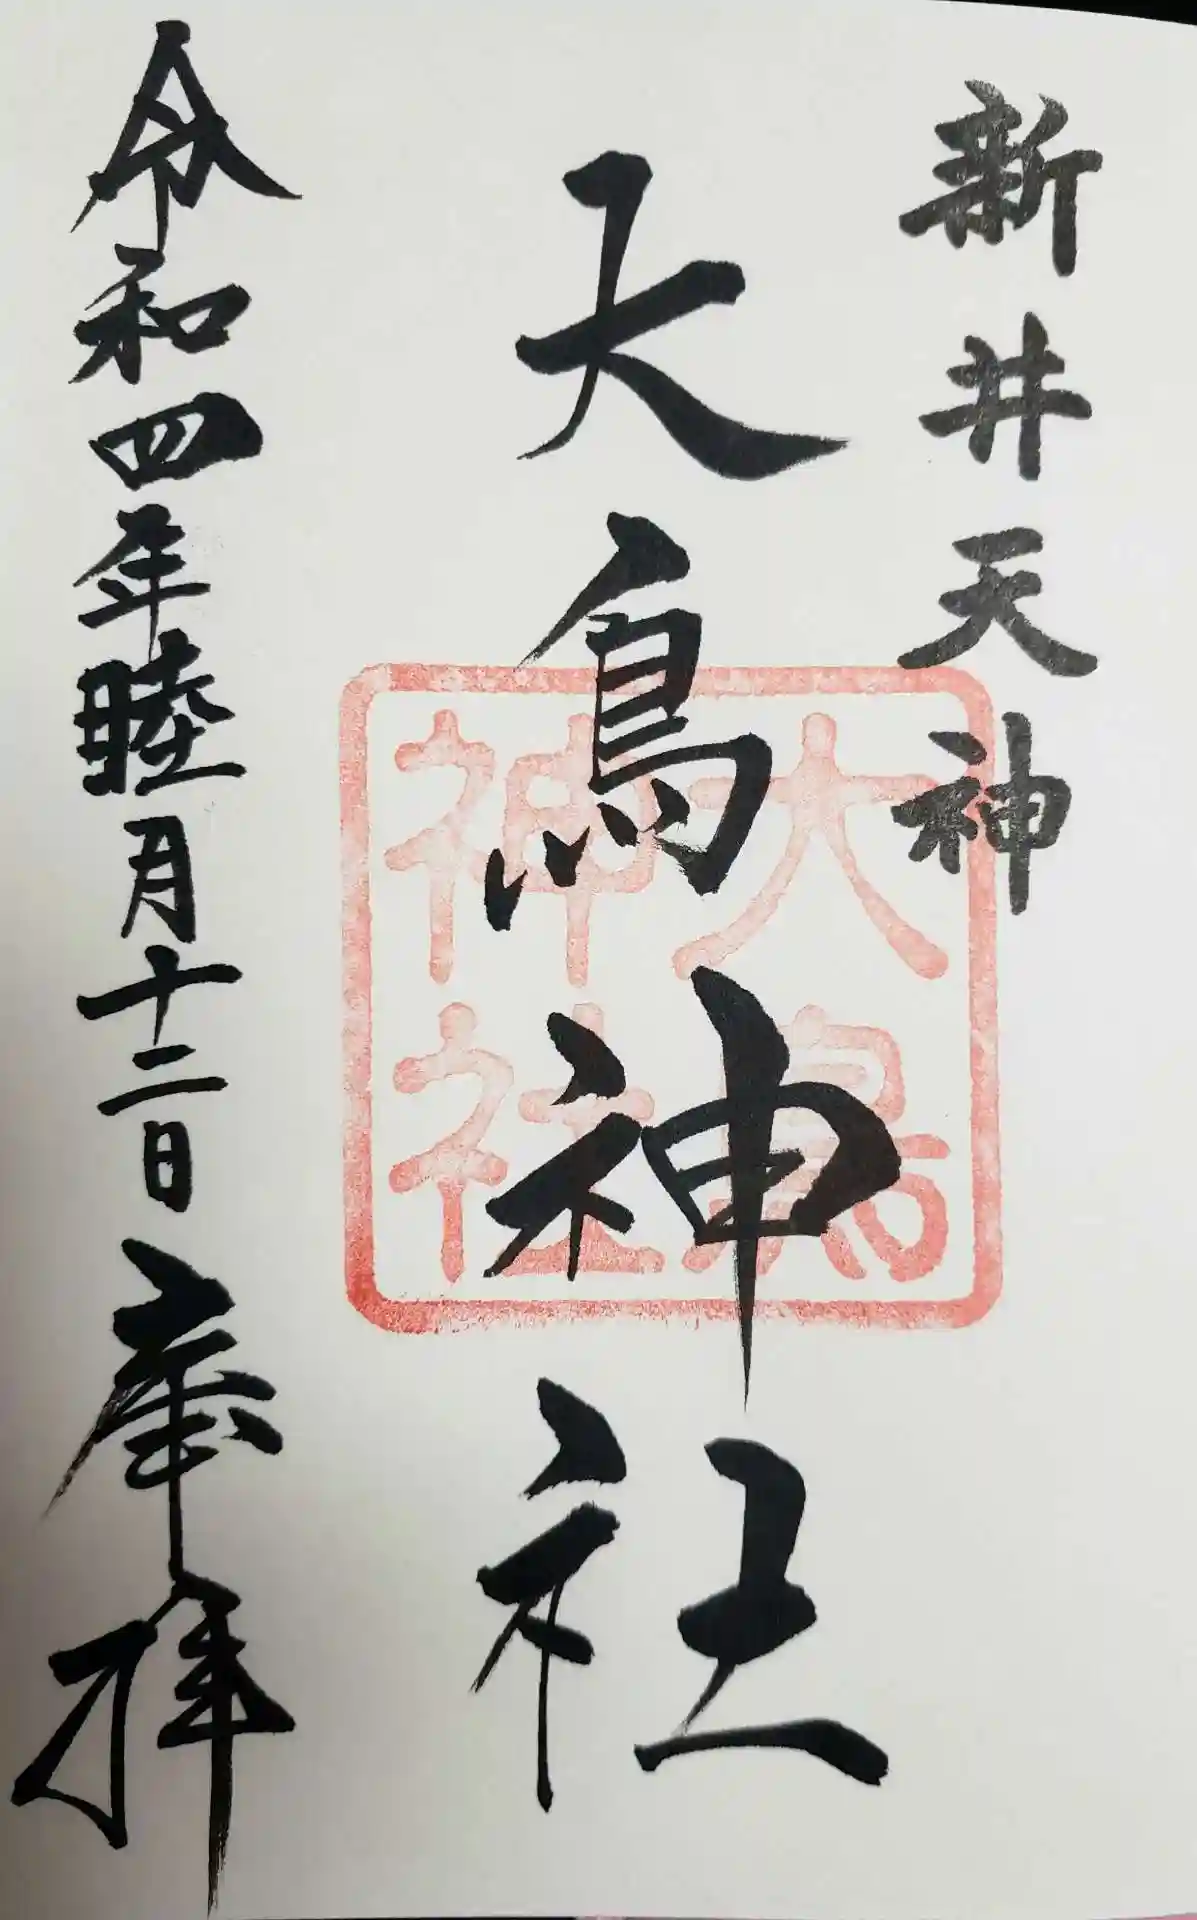 新井天神
大鳥神社
大鳥
神社
令和四年睦月十二日奉拝